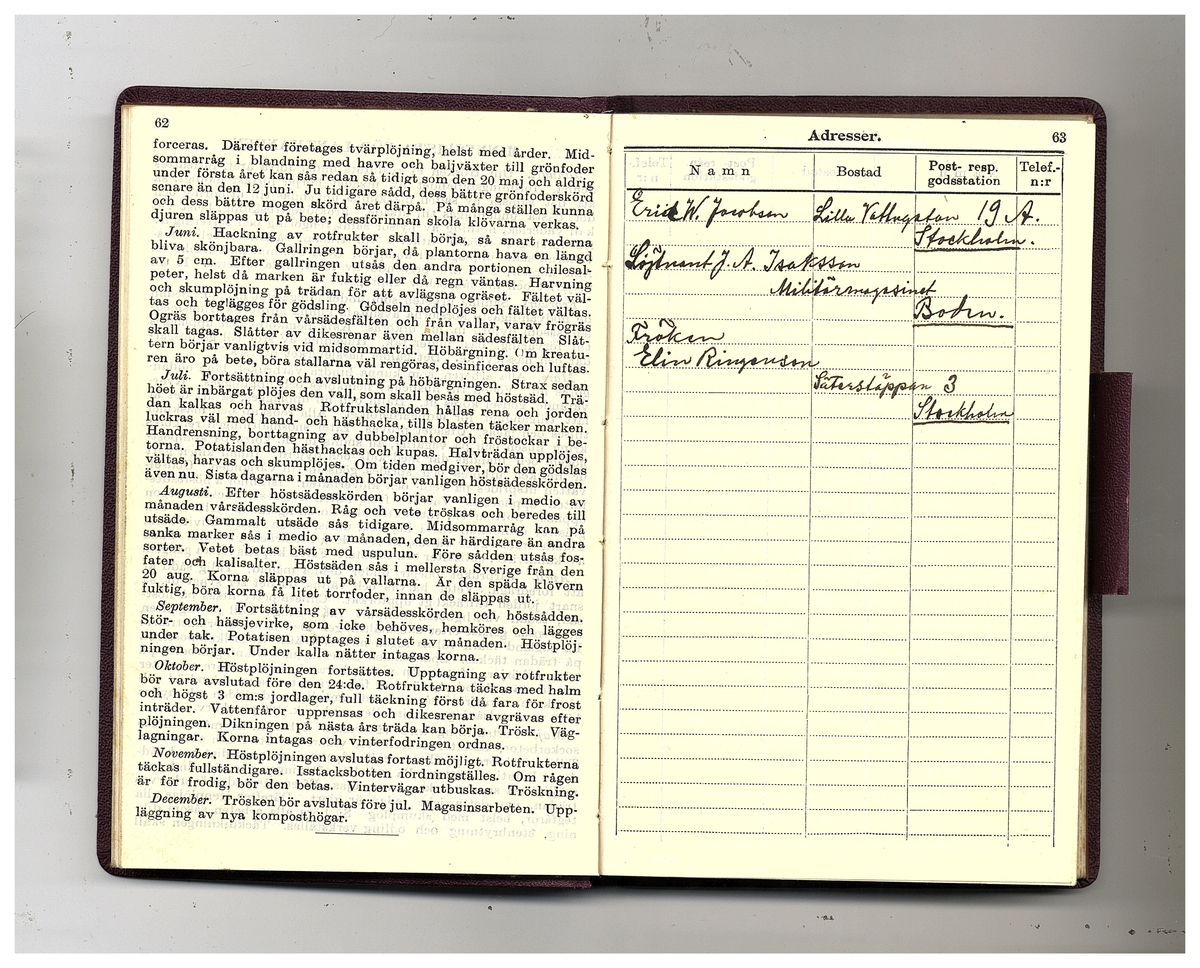 62
forceras. Därefter företages tvärplöjning, helst med årder. Mid-
sommarråg i blandning med havre och baljväxter till grönfoder
under första året kan sås redan så tidigt som den 20 maj och aldrig
senare än den 12 juni. Ju tidigare sådd, dess bättre grönfoderskörd
och dess bättre mogen skörd året därpå. På många ställen kunna
djuren släppas ut på bete; dessförinnan skola klövarna verkas.
Juni. Hackning av rotfrukter skall börja, så snart raderna
bliva skönjbara. Gallringen börjar, då plantorna hava en längd
av 5 cm. Efter gallringen utsås den andra portionen chilesal-
peter, helst då marken är fuktig eller då regn väntas. Harvning
och skumplöjning på trädan för att avlägsna ogräset. Fältet väl-
tas och teglägges för gödsling. Gödseln nedplöjes och fältet vältas.
Ogräs borttages från vårsädesfälten och från vallar, varav frögräs
skall tagas. Slåtter av dikesrenar även mellan sädesfälten Slåt-
tern börjar vanligtvis vid midsommartid. Höbärgning. Om kreatu-
ren äro på bete, böra stallarna väl rengöras, desinficeras och luftas.
Juli. Fortsättning och avslutning på höbärgningen. Strax sedan
höet är inbärgat plöjes den vall, som skall besås med höstsäd. Trä-
dan kalkas och harvas Rotfruktslanden hållas rena och jorden
luckras väl med hand- och hästhacka, tills blasten täcker marken.
Handrensning, borttagning av dubbelplantor och fröstockar i be-
torna. Potatislanden hästhackas och kupas. Halvträdan upplöjes,
vältas, harvas och skumplöjes. Om tiden medgiver, bör den gödslas
även nu. Sista dagarna i månaden börjar vanligen höstsädesskörden.
Augusti. Efter höstsädesskörden börjar vanligen i medio av
månaden vårsädesskörden. Råg och vete tröskas och beredes till
utsäde. Gammalt utsäde sås tidigare. Midsommarråg kan på
sanka marker sås i medio av månaden, den är härdigare än andra
sorter. Vetet betas bäst med uspulun. Före sådden utsås fos-
fater och kalisalter. Höstsäden sås i mellersta Sverige från den
20 aug. Korna släppas ut på vallarna. Är den späda klövern
fuktig, böra korna få litet torrfoder, innan de släppas ut.
September. Fortsättning av vårsädesskörden och höstsådden.
Stör- och hässjevirke, som icke behöves, hemköres och lägges
under tak. Potatisen upptages i slutet av månaden. Höstplöj-
ningen börjar. Under kalla nätter intagas korna.
Oktober. Höstplöjningen fortsättes. Upptagning av rotfrukter
bör vara avslutad före den 24:de. Rotfrukterna täckas med halm
och högst 3 cm:s jordlager, full täckning först då fara för frost
inträder. Vattenfåror upprensas och dikesrenar avgrävas efter
plöjningen. Dikningen på nästa års träda kan börja. Trösk. Väg-
lagningar. Korna intagas och vinterfodringen ordnas.
November. Höstplöjningen avslutas fortast möjligt. Rotfrukterna
täckas fullständigare. Isstacksbotten iordningställes. Om rågen
är för frodig, bör den betas. Vintervägar utbuskas. Tröskning.
December. Trösken bör avslutas före jul. Magasinsarbeten. Upp-
läggning av nya komposthögar.
Adresser. 63
Namn Bostad Post- resp. godsstation Telef.-n:r
Erik W. Jacobson Lilla Vattugatan 19 A.
Stockholm.
Löjtnant J. A. Isaksson
Militärmagasinet
Boden.
Fröken
Elin Ringenson
Säterstäppan 3
Stockholm